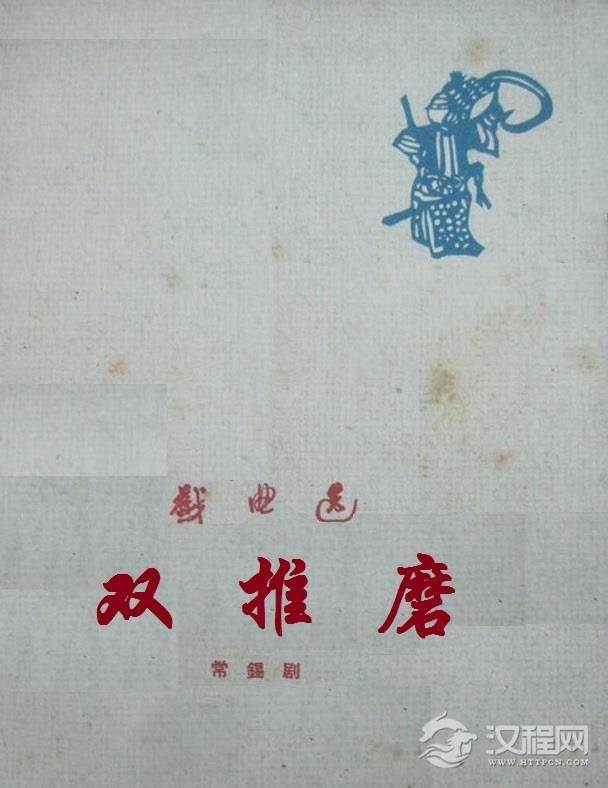 戲曲选
双推磨
常錫剧
汉程网
WWW.HTTPCN.COM